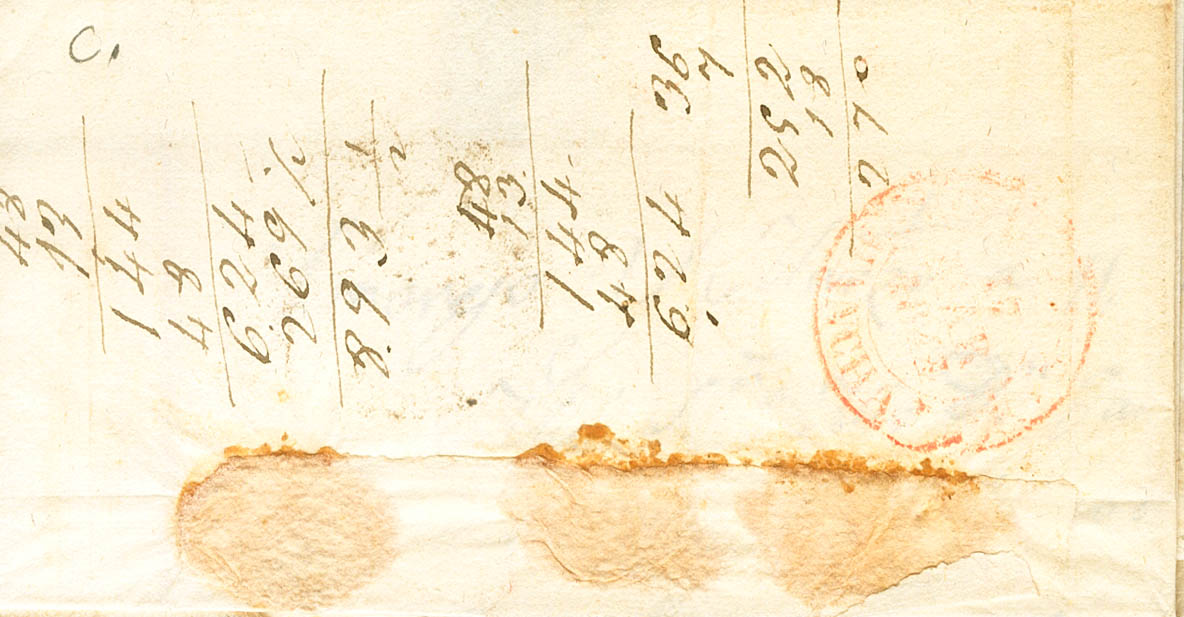 C.
48
13
144
48
624
269 ½
893 ½
48
13
144
48
624
36
7
252
18
270